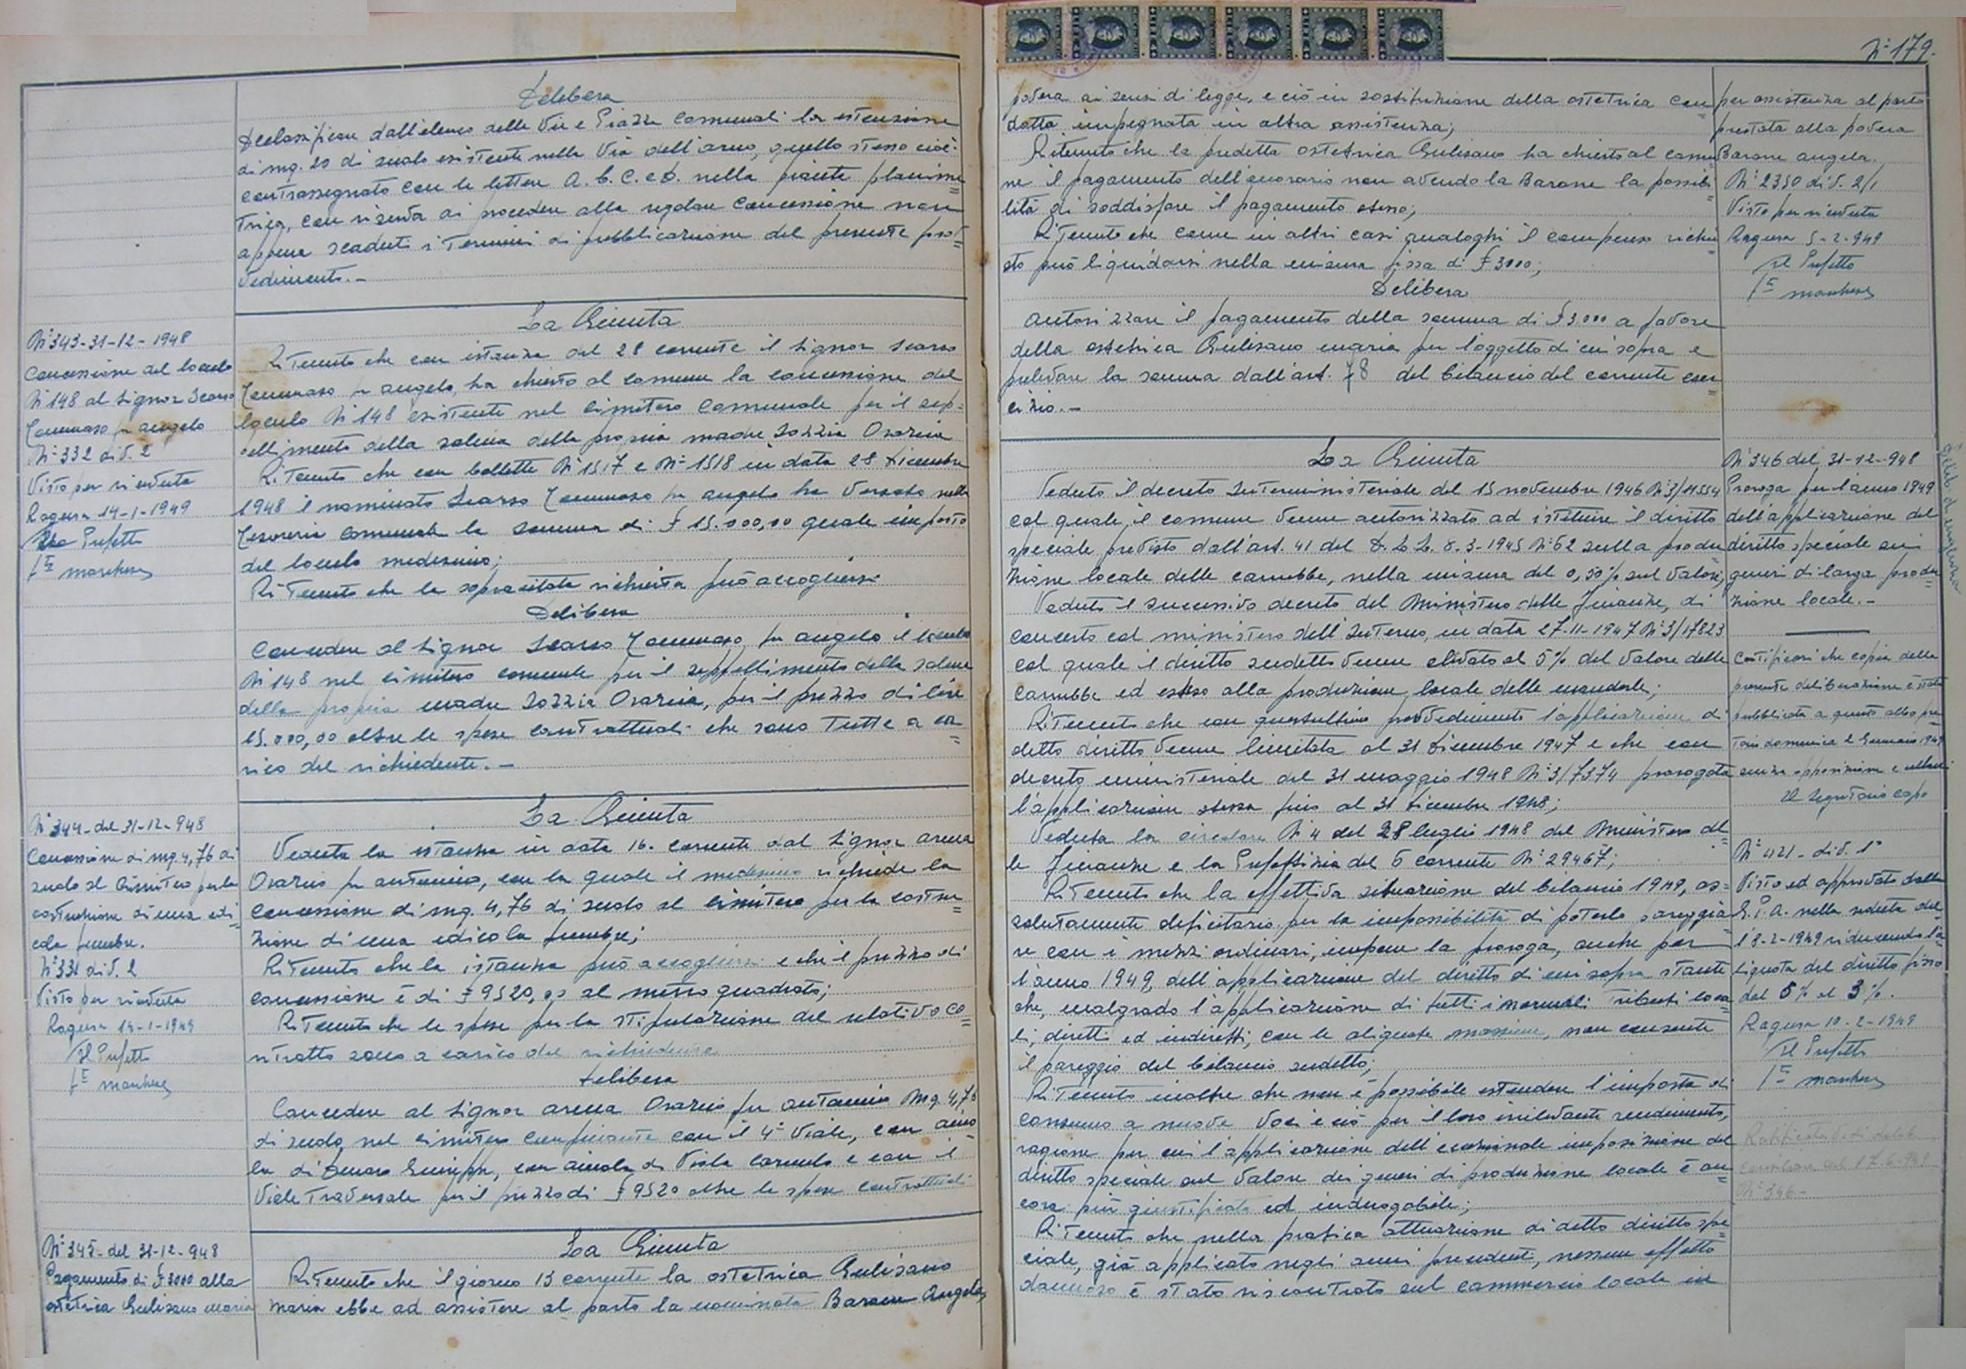 Delibera
Declassificare dall'elenco delle Vie e Piazze Comunali la estensione
di mq. 20 di suolo esistente nella Via dell'arno, quello stesso cioè
contrassegnato con le lettere A. B. C. e D. nella pianta planime=
trica, con riserva di procedere alla regolare concessione non
appena scaduti i termini di pubblicazione del presente prov=
vedimento.-
N° 343-31-12-1948
Concessione del loculo
N° 148 al Signor Scarso
Tommaso fu angelo
N° 332 div. 2
Visto per ricevuta
Ragusa 14-1-1949
Prefetto
La Giunta
Ritenuto che con istanza del 28 corrente il Signor Scarso
Tommaso fu angelo, ha chiesto al comune la concessione del
loculo N° 148 esistente nel cimitero Comunale per il sep=
pellimento della salma della propria madre Iozzia Orazia
Ritenuto che con bollette N° 1517 e N° 1518 in data 28 Dicembre
1948 il nominato Scarso Tommaso fu angelo ha versato nella
Tesoreria comunale la somma di £ 15.000,00 quale importo
del loculo medesimo;
Ritenuto che la sopracitata richiesta può accogliersi
Delibera
Concedere al Signor Scarso Tommaso fu angelo il loculo
N° 148 nel cimitero comunale per il seppellimento della salma
della propria madre Iozzia Orazia, per il prezzo di lire
15.000,00 oltre le spese contrattuali che sono tutte a ca=
rico del richiedente.-
N° 344-del 31-12-948
Concessione di mq. 4,76 di
suolo al Cimitero per la
costruzione di una edi=
cola funebre.
N° 331 div. 2
Visto per ricevuta
Ragusa 14-1-1949
Il Prefetto
La Giunta
Veduta la istanza in data 16 corrente del Signor arena
Orazio fu antonino, con la quale il medesimo richiede la
concessione di mq. 4,76 di suolo al cimitero per la costru=
zione di una edicola funebre;
Ritenuto che la istanza può accogliersi e che il prezzo di
concessione è di £ 9520,00 al metro quadrato;
Ritenuto che le spese per la stipulazione del relativo co=
ntratto sono a carico del richiedente
Delibera
Concedere al Signor arena Orazio fu antonino Mq. 4,76
di suolo, nel cimitero confinante con il 4° Viale, con aiuo=
la di Giuseppe, con aiuola di Viola Carmelo e con il
Viale Traversale per il prezzo di £ 9520 oltre le spese contrattuali
N° 345-del 31-12-948
Pagamento di £ 3000 alla
ostetrica Gulisano Maria
La Giunta
Ritenuto che il giorno 13 corrente la ostetrica Gulisano
Maria ebbe ad assistere al parto la nominata Barone Angela,
N° 179.
povera ai sensi di legge, e ciò in sostituzione della ostetrica con=
dotta impegnata in altra assistenza;
Ritenuto che la predetta ostetrica Gulisano ha chiesto al comu=
ne il pagamento dell'onorario non avendo la Barone la possibi=
lità di soddisfare il pagamento stesso;
Ritenuto che come in altri casi analoghi il compenso richie=
sto può liquidarsi nella misura fissa di £ 3000;
Delibera
autorizzare il pagamento della somma di £ 3.000 a favore
della ostetrica Gulisano maria per l'oggetto di cui sopra e
prelevare la somma dall'art. 78 del bilancio del corrente eser=
cizio.-
per assistenza al parto
prestata alla povera
Barone angela.
N° 2350 div. 2/1
Visto per ricevuta
Ragusa 5-2-949
Il Prefetto
La Giunta
Veduto il decreto Interministeriale del 15 novembre 1946 N° 3/11554
col quale, il comune venne autorizzato ad istituire il diritto
speciale previsto dall'art. 41 del D.L.L. 8-3-1945 N° 62 sulla produ=
zione locale delle carrubbe, nella misura del 0,50% sul valore;
Veduto il successivo decreto del Ministero delle Finanze, di
concerto col ministero dell'Interno, in data 27-11-1947 N° 3/17823
col quale il diritto suddetto venne elevato al 5% del valore delle
carrubbe ed esteso alla produzione locale delle mandorle;
Ritenuto che con quest'ultimo provvedimento l'applicazione di
detto diritto venne limitata al 31 Dicembre 1947 e che con
decreto ministeriale del 31 maggio 1948 N° 3/7374 prorogata
l'applicazione stessa fino al 31 Dicembre 1948;
Veduta la circolare N° 4 del 28 luglio 1948 del Ministero del=
le Finanze e la Prefettizia del 6 corrente N° 29467;
Ritenuto che la effettiva situazione del bilancio 1949, as=
solutamente deficitario per la impossibilità di poterlo pareggia=
re con i mezzi ordinari, impone la proroga, anche per
l'anno 1949, dell'applicazione del diritto di cui sopra stante
che, malgrado l'applicazione di tutti i normali Tributi loca=
li, diretti ed indiretti, con le aliquote massime, non consente
il pareggio del bilancio suddetto;
Ritenuto inoltre che non è possibile estendere l'imposta di
consumo a nuove voci e ciò per il loro irrilevante rendimento,
ragione per cui l'applicazione dell'eccezionale imposizione del
diritto speciale sul valore dei generi di produzione locale è an=
cora più giustificata ed inderogabile;
Ritenuto che nella pratica attuazione di detto diritto spe=
ciale, già applicato negli anni precedenti, nessun effetto
dannoso è stato riscontrato sul commercio locale in
N° 346 del 31-12-948
Proroga per l'anno 1949
dell'applicazione del
diritto speciale sui
generi di larga produ=
zione locale.-
Certificasi che copia della
presente deliberazione è stata
pubblicata a questo albo pre=
torio domenica 2 Gennaio 1949
senza opposizione e reclami
Il Segretario capo
N° 421- div. 1°
Visto ed approvato dalla
G.P.A. nella seduta del=
l'8-2-1949 riducendo l'a=
liquota del diritto fisso
dal 5% al 3%.
Ragusa 10-2-1949
Il Prefetto
Ratificata
N° 346-